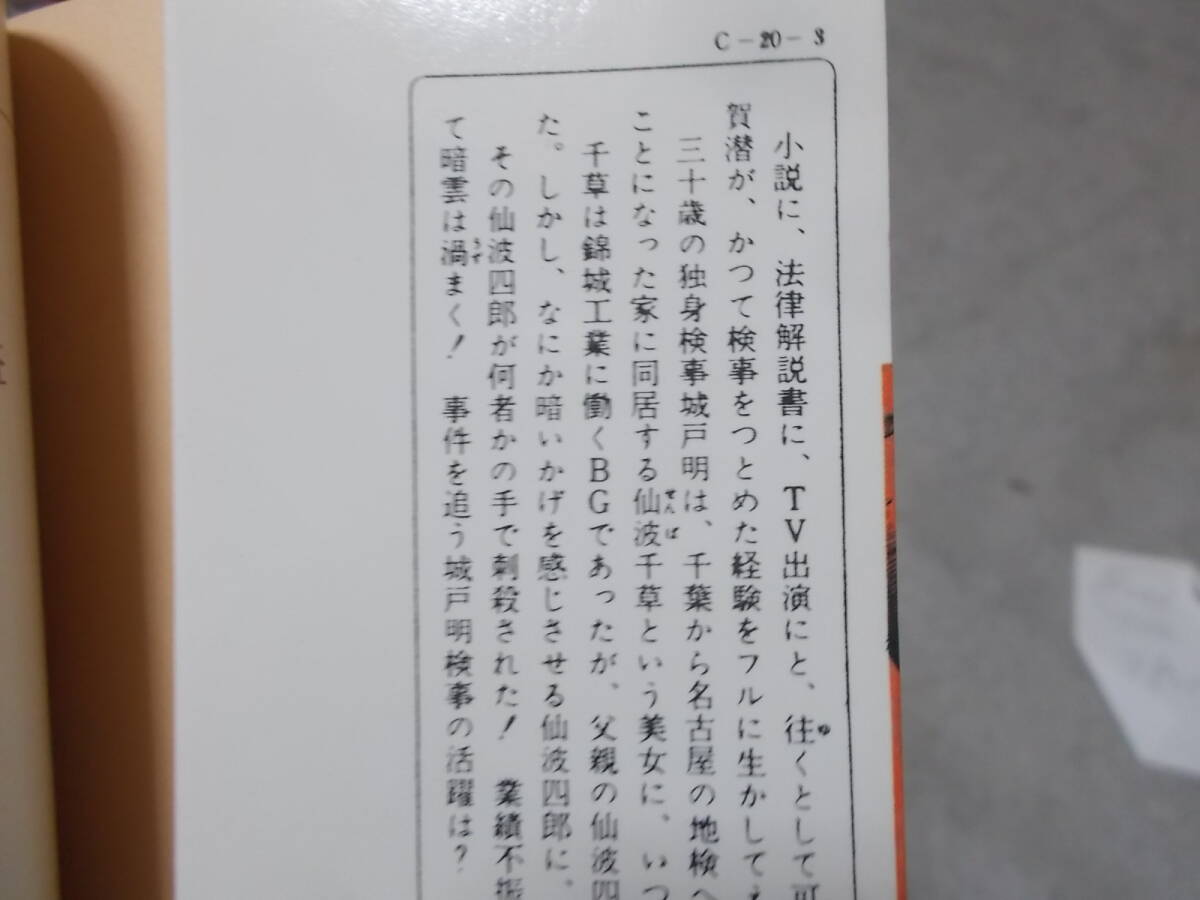 C-20-3
小説に、法律解説書に、TV出演にと、往くとして可
賀潜が、かつて検事をつとめた経験をフルに生かして
三十歳の独身検事城戸明は、千葉から名古屋の地検へ
ことになった家に同居する仙波千草という美女に、いつ
千草は錦城工業に働くBGであったが、父親の仙波四
た。しかし、なにか暗いかげを感じさせる仙波四郎に、
その仙波四郎が何者かの手で刺殺された! 業績不振
て暗雲は渦まく! 事件を追う城戸明検事の活躍は?